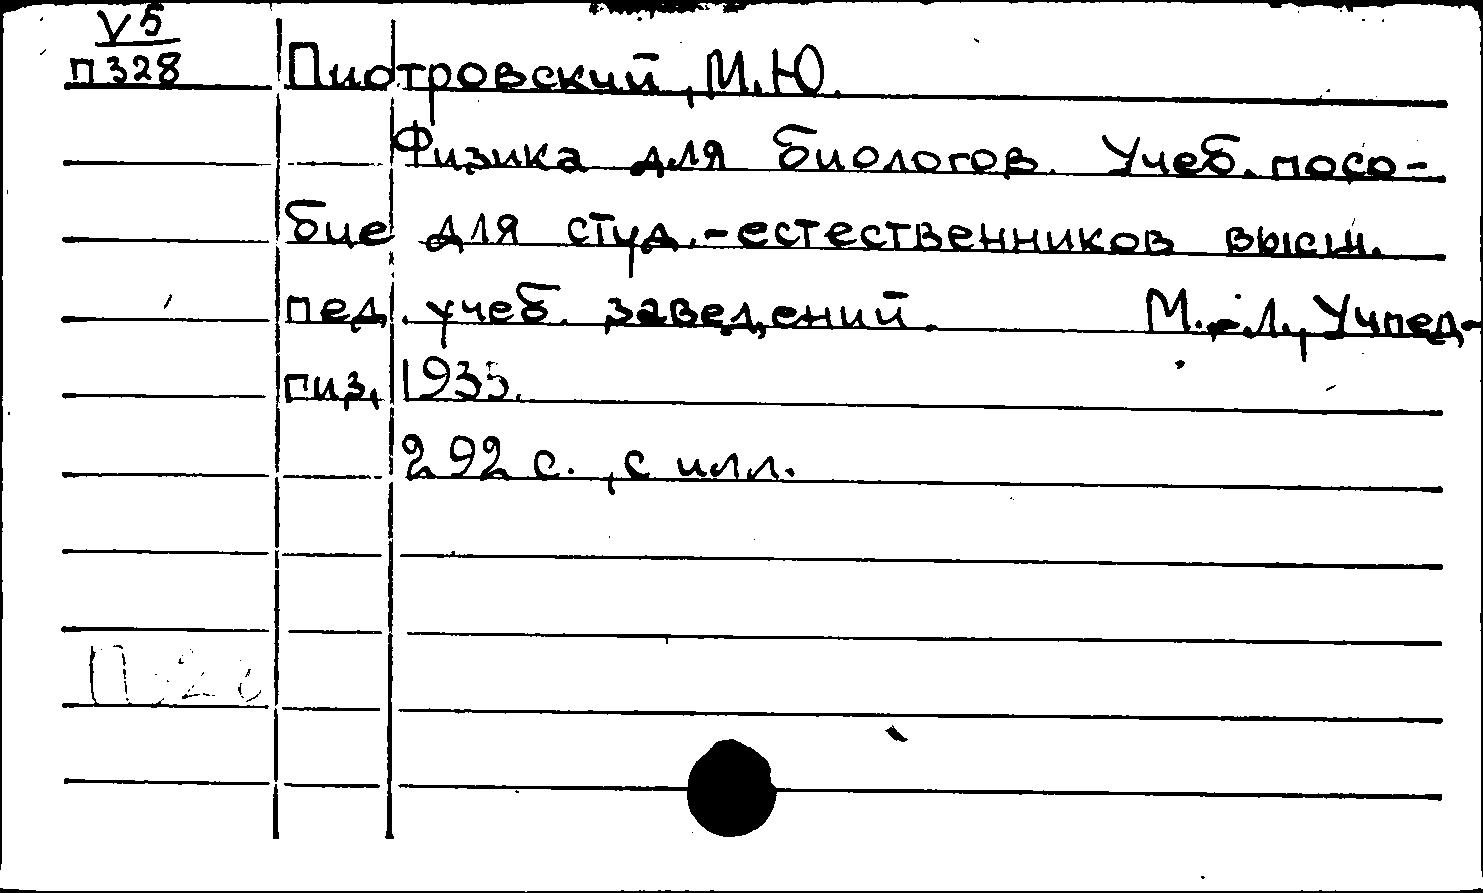 V5
П328
Пиотровский, М.Ю.
Физика для биологов. Учеб. посо-
бие для студ.-естественников высш.
пед. учеб. заведений. М.-Л., Учпед-
гиз, 1935.
292 с., с илл.